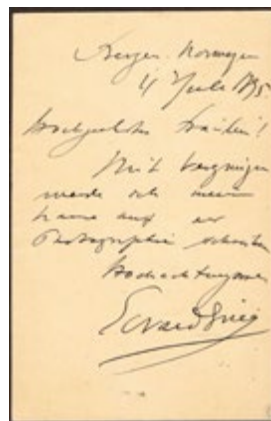 Bergen. Norwegen
4 Juli 1895
Hochgeehrtes Fräulein!
Mit Vergnügen
werde ich mein
Name auf der
Photographie schreiben
Hochachtungsvoll
Edvard Grieg